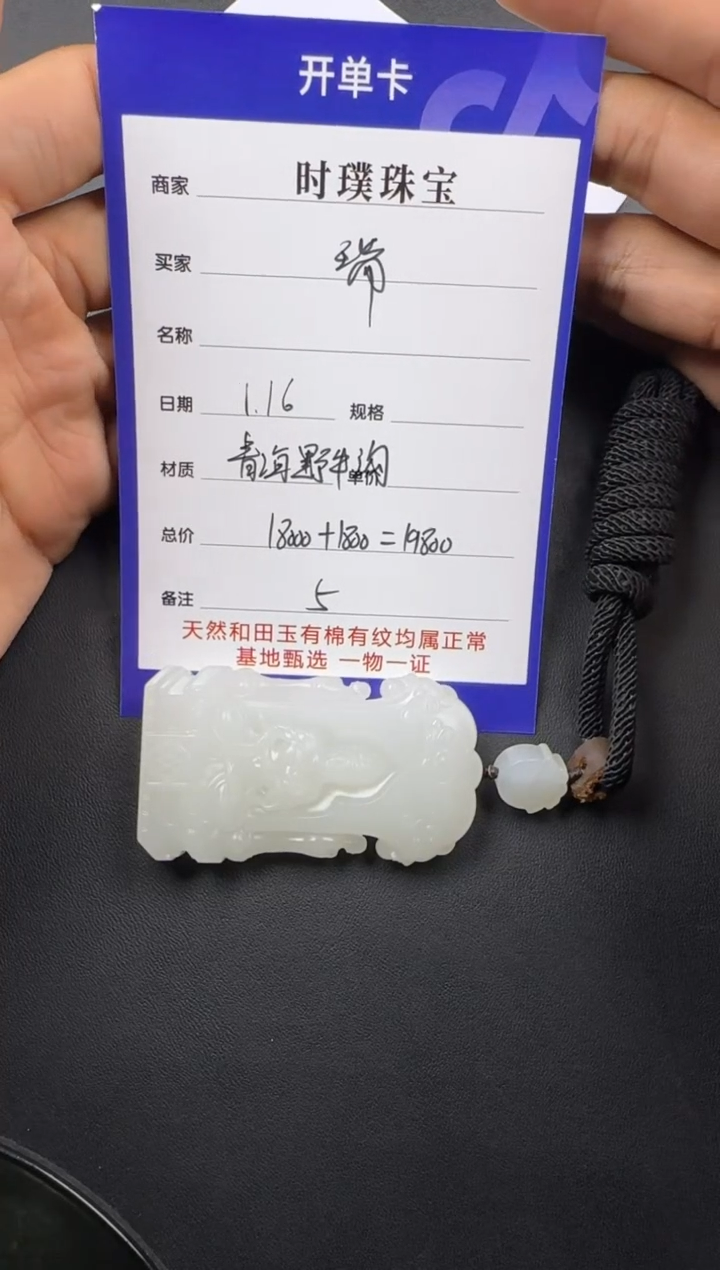 开单卡
商家 时璞珠宝
买家 瑞
名称
日期 1.16 规格
材质 青海野牛沟 单价
总价 18000+1800=19800
备注 5
天然和田玉有棉有纹均属正常
基地甄选 一物一证